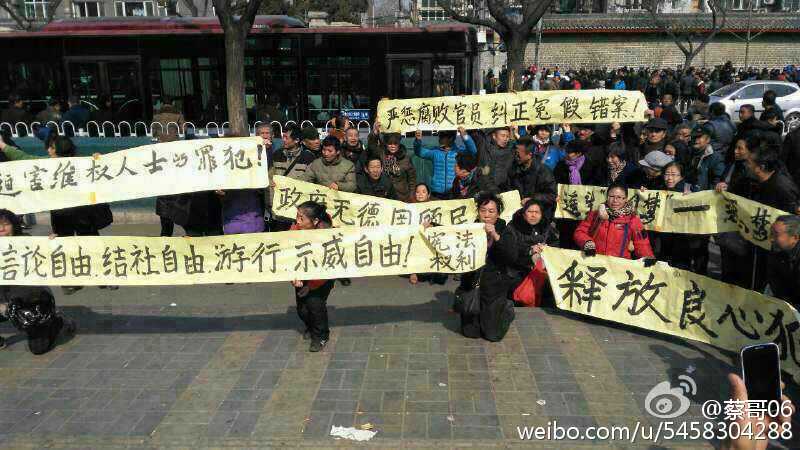 严惩腐败官员纠正冤假错案!
迫害维权人士的罪犯!
政府无德
言论自由.结社自由.游行.示威自由!
宪法
权利
释放良心犯
@蔡哥06
weibo.com/u/5458304288